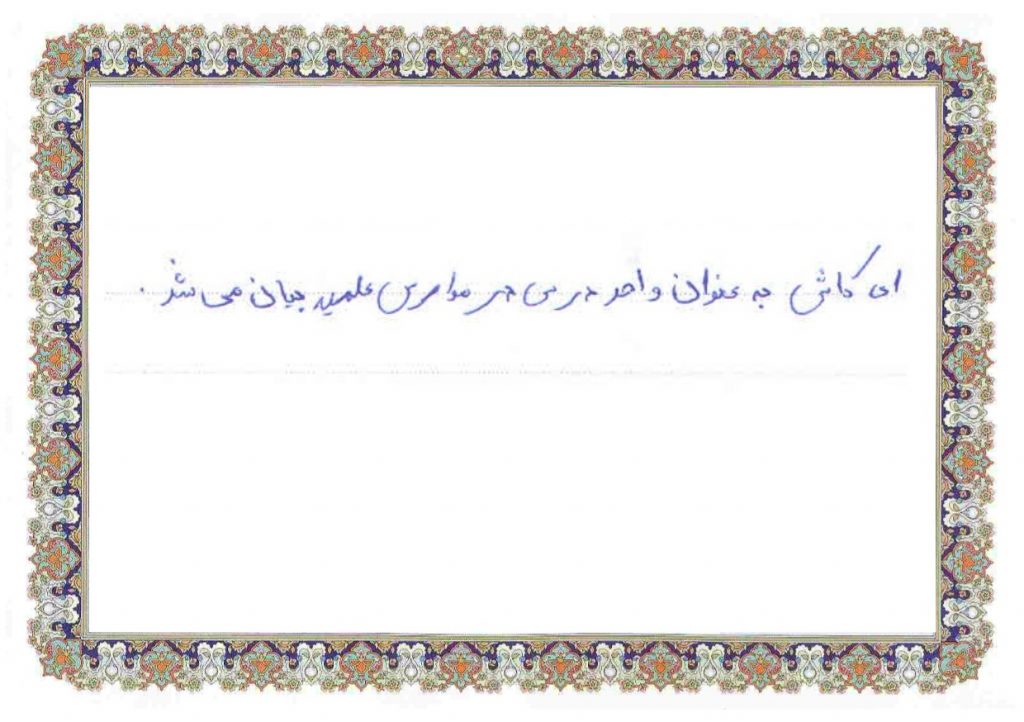 ای کاش به عنوان واحد درسی در مدارس علمیه بیان می شد.